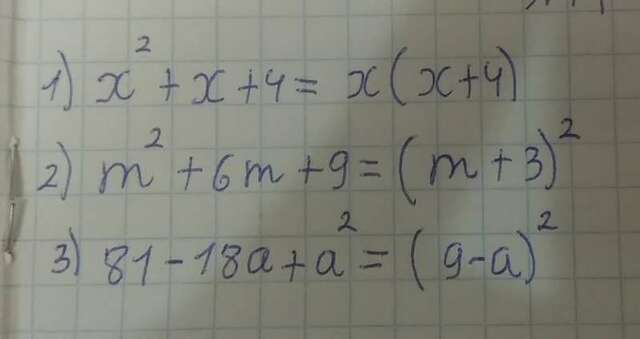 1) x² + x + 4 = x(x+4)
2) m² + 6m + 9 = (m + 3)²
3) 81 - 18a + a² = (9-a)²